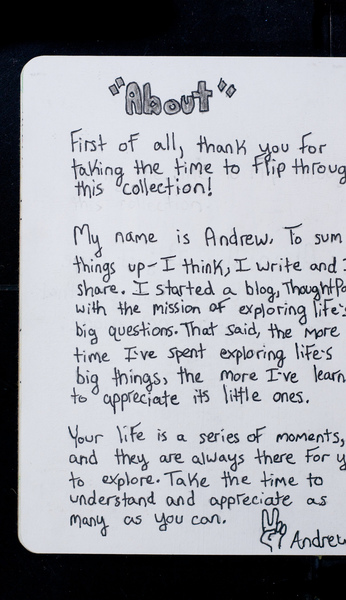 "About"
First of all, thank you for
taking the time to flip throug
this collection!
My name is Andrew. To sum
things up-I think, I write and I
share. I started a blog, ThoughtPo
with the mission of exploring life's
big questions. That said, the more
time I've spent exploring life's
big things, the more I've learn
to appreciate its little ones.
Your life is a series of moments,
and they are always there for y
to explore. Take the time to
understand and appreciate as
many as you can.
Andrew